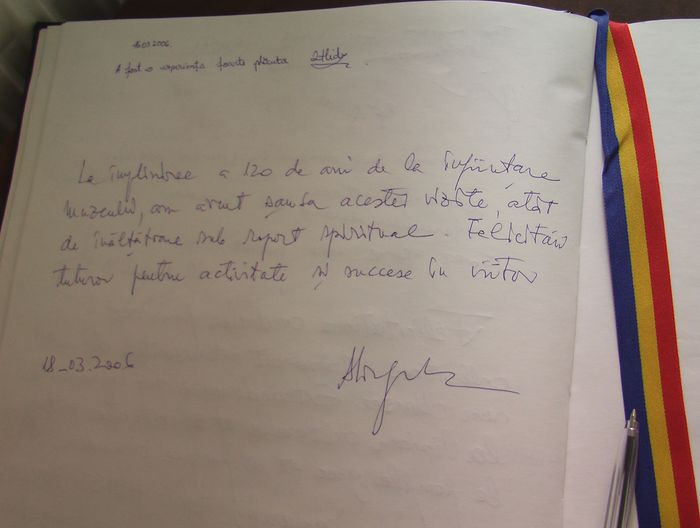 18.03.2006
A fost o experiență foarte plăcută
La împlinirea a 120 de ani de la înființare
muzeului, am avut șansa acestei vizite, atât
de înălțătoare sub raport spiritual. Felicitări
tuturor pentru activitate și succese în viitor
18-03.2006